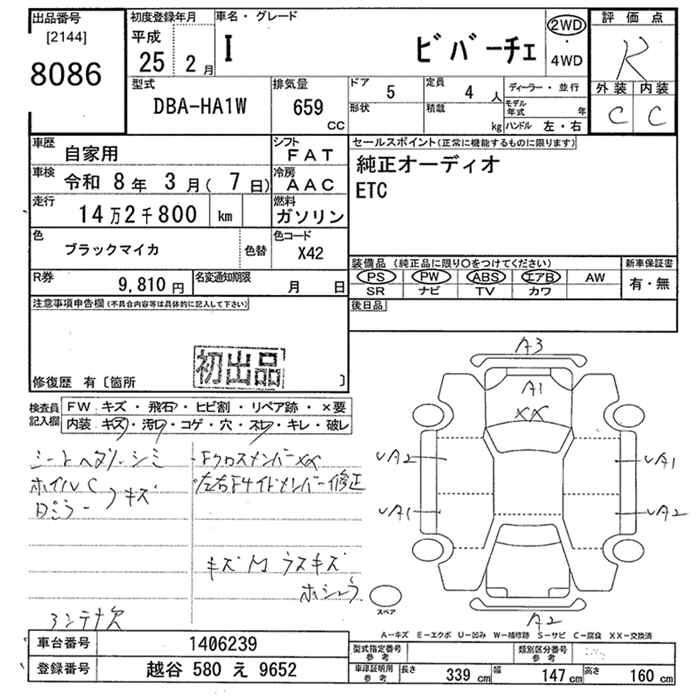 出品番号 初度登録年月 車名・グレード 評価点
[2144] 平成 25 2月 I ビバーチェ 2WD・4WD R
8086 外装 内装
型式 排気量 ドア 5 定員 4人 ディーラー・並行 C C
DBA-HA1W 659 CC 形状 積載 kg モデル年式 年 ハンドル 左・右
車歴 自家用 シフト FAT セールスポイント(正常に機能するものに限ります)
車検 令和 8年 3月( 7日) 冷房 AAC 純正オーディオ
走行 14万2千800 km 燃料 ガソリン ETC
色 ブラックマイカ 色替 色コード X42
装備品 (純正品に限り○をつけてください) 新車保証書
R券 9,810円 名変通知期限 月 日 PS PW ABS エアB AW 有・無
SR ナビ TV カワ
注意事項申告欄(不具合内容等は具体的に記入して下さい) 後日品
初出品
修復歴 有〔箇所 〕
検査員記入欄 FW キズ・飛石・ヒビ割・リペア跡・×要
内装 キズ・汚れ・コゲ・穴・スレ・キレ・破レ
シートヘタリ・シミ ・FクロスメンバーXX
ホイルC ・左右Fサイドメンバー修正
Dミラー キズ
キズM ウスキズ
ホシュウ
アンテナ欠
A3
A1
XX
UA2 UA1
UA1 UA2
A2
スペア
A-キズ E-エクボ U-凹み W-補修跡 S-サビ C-腐食 XX-交換済
車台番号 1406239 型式指定番号 参考 類別区分番号 参考
登録番号 越谷 580 え 9652 車庫証明用 参考 長さ 339cm 幅 147cm 高さ 160cm